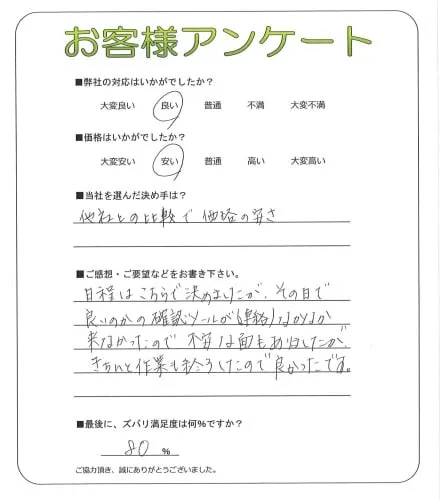 お客様アンケート
■弊社の対応はいかがでしたか？
大変良い 良い 普通 不満 大変不満
■価格はいかがでしたか？
大変安い 安い 普通 高い 大変高い
■当社を選んだ決め手は？
他社との比較で価格の安さ
■ご感想・ご要望などをお書き下さい。
日程はこちらで決めましたが、その日で
良いのかの確認メールが(連絡)なかなか
来なかったので不安な面もありましたが、
きちんと作業も終了したので良かったです。
■最後に、ズバリ満足度は何%ですか？
80 %
ご協力頂き、誠にありがとうございました。